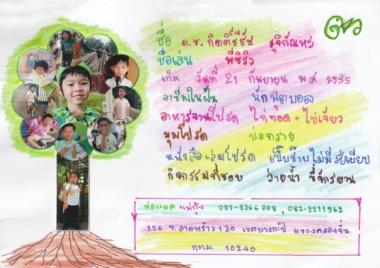 ชื่อ ด.ช. กิตติ์ธัช
ชื่อเล่น พีร์วิว
เกิด วันที่ 21 กันยายน พ.ศ. 2555
อาชีพในฝัน นักฟุตบอล
อาหารจานโปรด ไก่ทอด + ไข่เจียว
มุมโปรด บ่อทราย
หนังสือเล่มโปรด เจี๊ยบจ๊าบไม่มีระเบียบ
กิจกรรมที่ชอบ ว่ายน้ำ ขี่จักรยาน
พ่อแมค แม่กุ้ง 081-8366708, 082-2211962
226 ซ.ลาดพร้าว 130 เขตบางกะปิ แขวงคลองจั่น
กทม. 10240